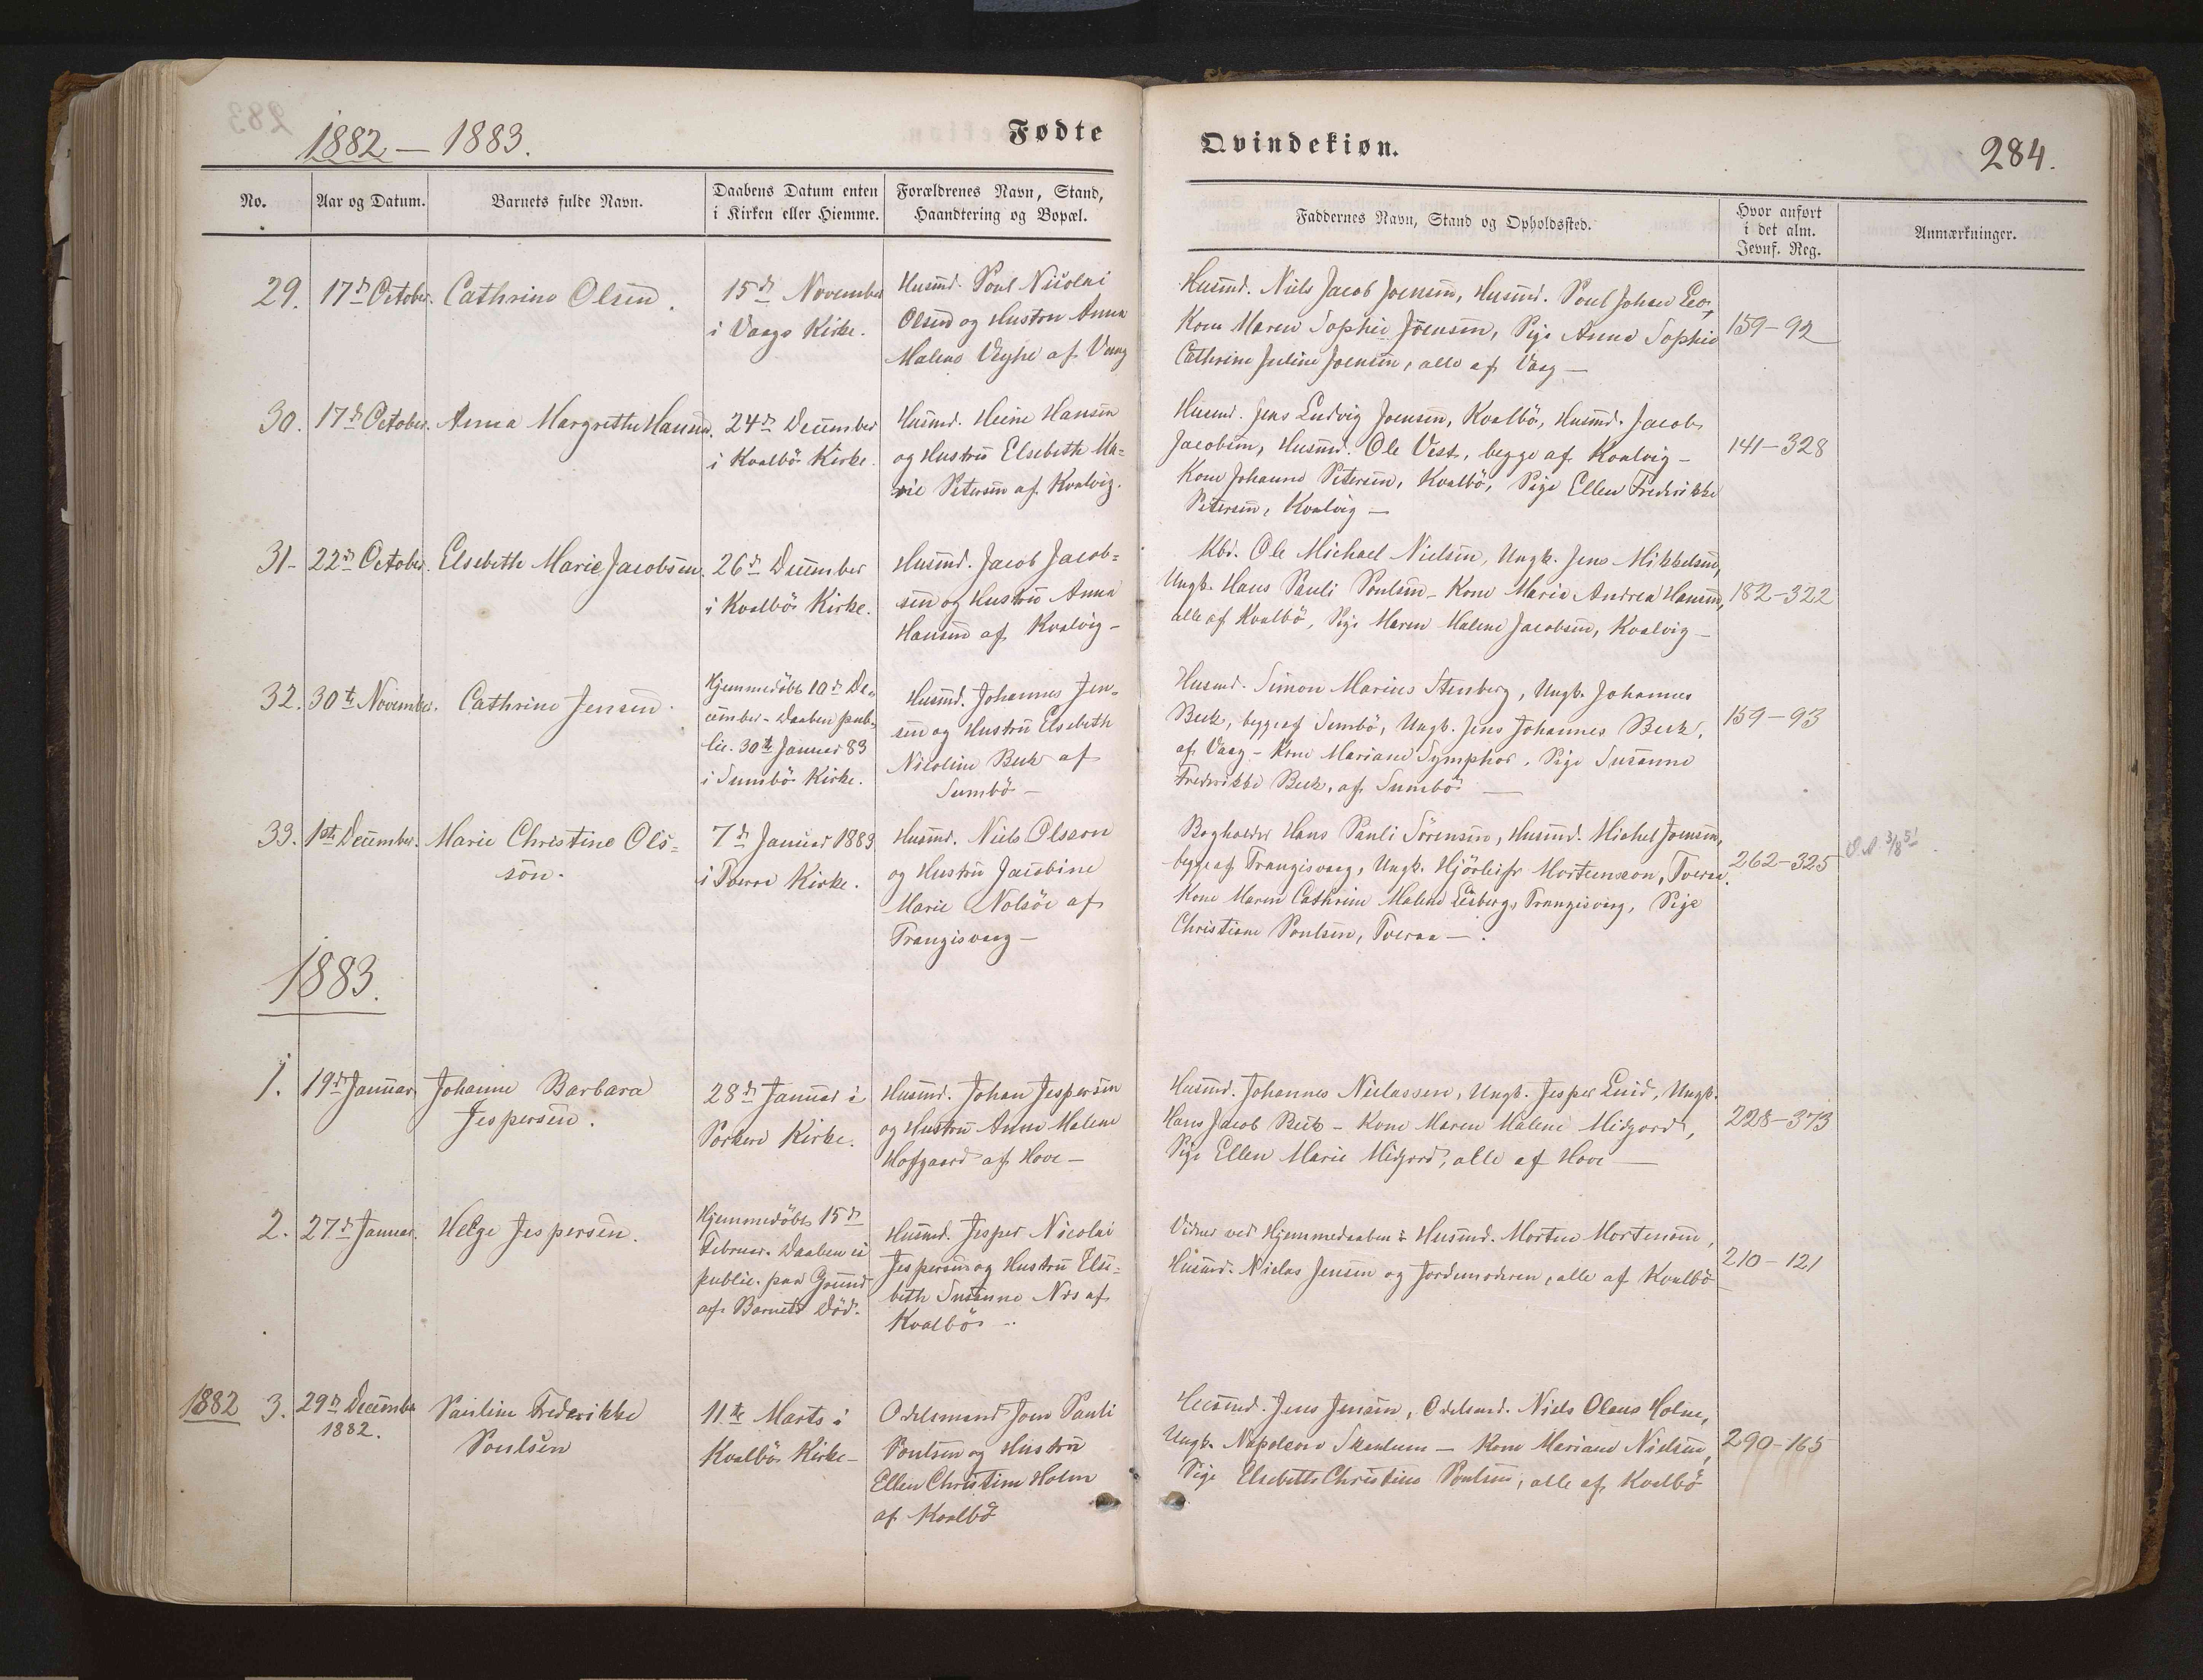 1882 – 1883.
Fødte
Qvindekiøn.
284.
No.
Aar og Datum.
Barnets fulde Navn.
Daabens Datum enten
i Kirken eller Hiemme.
Forældrenes Navn, Stand,
Haandtering og Bopæl.
Faddernes Navn, Stand og Opholdssted.
Hvor anført
i det alm.
Jevnf. Reg.
Anmærkninger.
29.
17d October.
Cathrine Olsen.
15d November
i Vaags Kirke.
Husmd. Poul Nicolai
Olsen og Hustru Anna
Malene Veyhe af Vaag
Husmd. Niels Jacob Joensen, Husmd. Poul Johan Leo,
Kone Maren Sophie Joensen, Pige Anna Sophie
Cathrine Juline Joensen, alle af Vaag –
159–92
30.
17d October.
Anna Margrethe Hansen.
24d December
i Kvalbö Kirke.
Husmd. Heine Hansen
og Hustru Elsebeth Ma=
rie Petersen af Kvalvig.
Husmd. Jens Ludvig Joensen, Kvalbö, Husmd. Jacob
Jacobsen, Husmd. Ole Vest, begge af Kvalvig –
Kone Johanne Petersen, Kvalbö, Pige Ellen Frederikke
Petersen, Kvalvig –
141–328
31–
22d October.
Elsebeth Marie Jacobsen.
26d December
i Kvalbö Kirke.
Husmd. Jacob Jacob=
sen og Hustru Anna
Hansen af Kvalvig –
Kbd. Ole Michael Nielsen, Ungk. Jens Mikkelsen,
Ungk. Hans Pauli Poulsen – Kone Marie Andrea Hansen,
alle af Kvalbö, Pige Maren Malene Jacobsen, Kvalvig –
182–322
32.
30te November.
Cathrine Jensen.
Hjemmedöbt 10d De=
cember – Daaben pub=
lic. 30te Januar 83
i Sumbö Kirke.
Husmd. Johannes Jen=
sen og Hustru Elsebeth
Nicoline Beck af
Sumbö –
Husmd. Simon Marius Stenberg, Ungk. Johannes
Beck, begge af Sumbö, Ungk. Jens Johannes Beck,
af Vaag – Kone Mariane Symphor, Pige Susanne
Frederikke Beck, af Sumbö –
159–93
33.
1ste December.
Marie Christine Ols=
son.
7d Januar 1883
i Tveraa Kirke.
Husmd. Niels Olsson
og Hustru Jacobine
Marie Nolsöe af
Trangisvaag –
Bogholder Hans Pauli Sörensen, Husmd. Michel Joensen,
begge af Trangisvaag, Ungk. Hjörleifr Mortensson, Tveraa.
Kone Maren Cathrine Malene Trangisvaag, Pige
Christiane Poulsen, Tveraa –.
262–325
1883.
1.
19d Januar
Johanne Barbara
Jespersen.
28d Januar i
Porkere Kirke.
Husmd. Johan Jespersen
og Hustru Anne Malene
Hofgaard af Hove –
Husmd. Johannes Niclassen, Ungk. Jesper Luid, Ungk.
Hans Jacob Beck – Kone Maren Malene Midjord,
Pige Ellen Marie Midjord, alle af Hove –
228–373
2.
27d Januar.
Helge Jespersen.
Hjemmedöbt 15d
Februar. Daaben ei
public. paa Grund
af Barnets Död.
Husmd. Jesper Nicolai
Jespersen og Hustru Else=
beth Susanne Næs af
Kvalbö –
Vidner ved Hjemmedaaben: Husmd. Morten Mortensen,
Husmd. Niclas Jensen og Jordemoderen, alle af Kvalbö
210–121
1882
3.
29d December
1882.
Pauline Frederikke
Poulsen
11te Marts i
Kvalbö Kirke –
Odelsmand Joen Pauli
Poulsen og Hustru
Ellen Christine Holm
af Kvalbö
Husmd. Jens Jensen, Odelsmd. Niels Olaus Holm,
Ungk. Napoleon – Kone Mariane Nielsen,
Pige Elsebeth Christine Poulsen, alle af Kvalbö
290–165